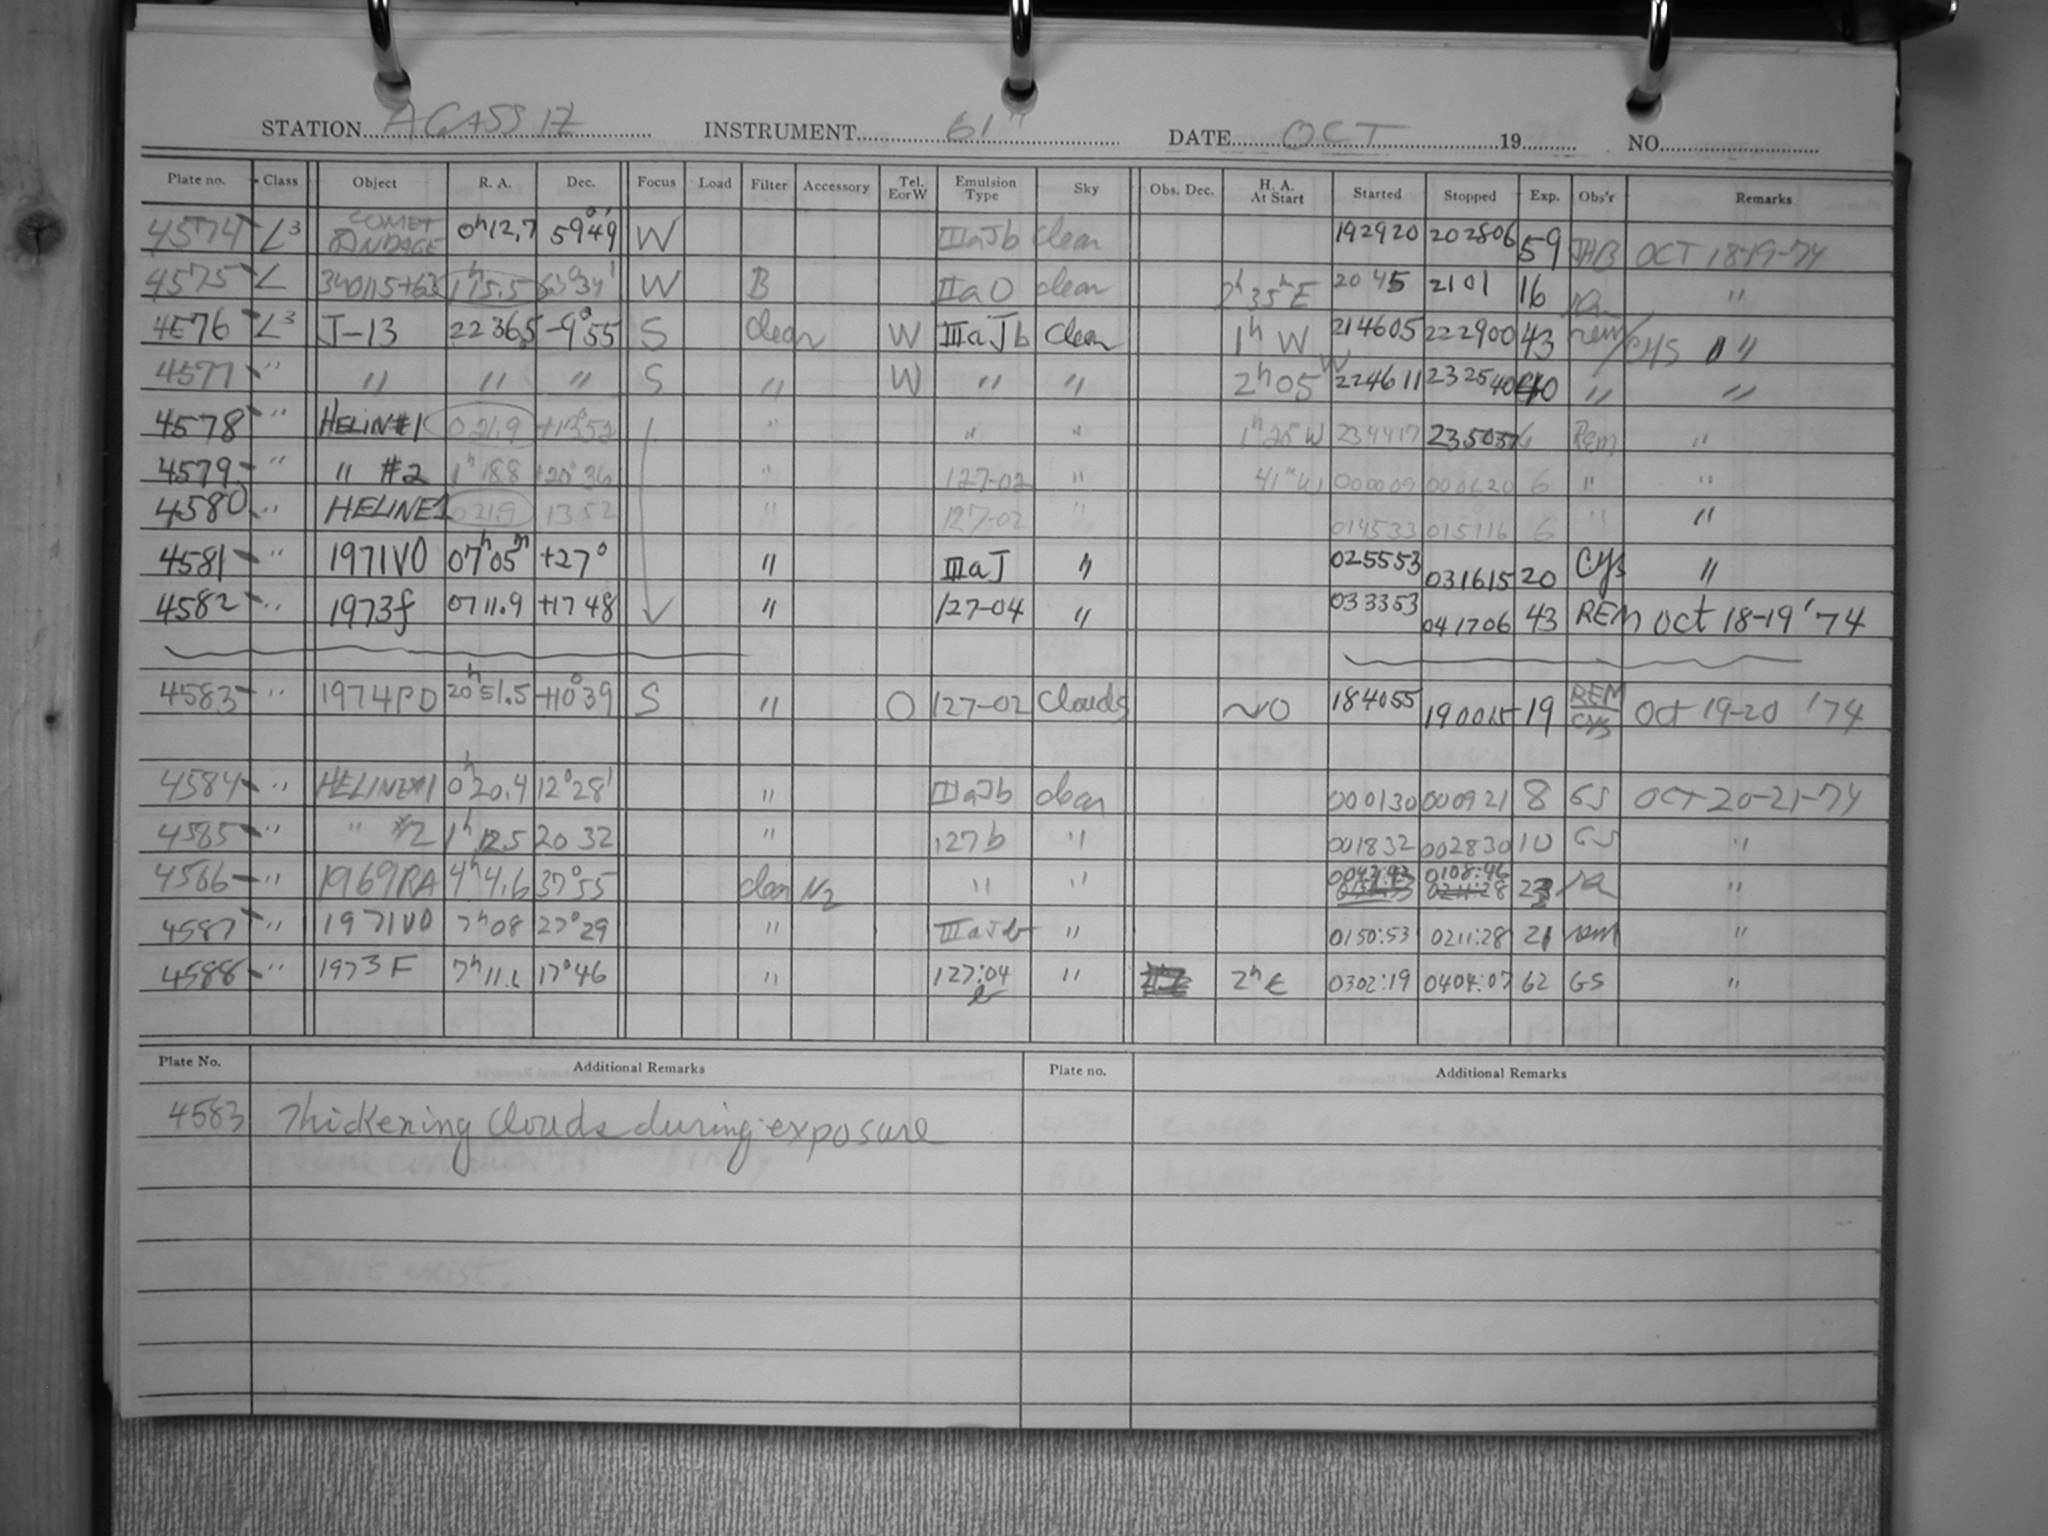 STATION AGASSIZ INSTRUMENT 61" DATE OCT 19 NO.
Plate no. Class Object R. A. Dec. Focus Load Filter Accessory Tel. E or W Emulsion Type Sky Obs. Dec. H. A. At Start Started Stopped Exp. Obs'r Remarks
4574 L3 COMET 0h12.7 59°49' W IIIaJb clear 192920 202806 59 JHB OCT 18-19-74
4575 L 340115+63 1h15.5 63°34' W B IIaO clear 2h35mE 20 45 2101 16 "
4576 L3 J-13 22 36.5 -9°55 S clear W IIIaJb clear 1h W 214605 222900 43 rem/CYS "
4577 " " " " S " W " " 2h05 W 224611 232540 40 " "
4578 " HELIN#1 0 21.9 +13°52 " " " 1h20mW 234417 235037 6 Rem "
4579 " " #2 1h18.8 +20°36 " 127-02 " 41mW 000009 000620 6 " "
4580 " HELINE1 0 21.9 13 52 " 127-02 " 014533 015116 6 " "
4581 " 1971VO 07h05m +27° " IIIaJ " 025553 031615 20 CYS "
4582 " 1973f 0711.9 +17 48 " 127-04 " 033353 041706 43 REM Oct 18-19 '74
4583 " 1974PD 20h51.5 +10°39 S " O 127-02 Clouds ~0 184055 190015 19 REM/CYS Oct 19-20 '74
4584 " HELINE#1 0h20.4 12°28' " IIIaJb clear 000130 000921 8 GS OCT 20-21-74
4585 " " #2 1h12.5 20 32 " 127b " 001832 002830 10 GS "
4586 " 1969RA 4h4.6 37°55 clear N2 " " 0108:46 "
4587 " 1971VO 7h08 27°29 " IIIaJb " 0150:53 0211:28 21 rem "
4588 " 1973F 7h11.1 17°46 " 127:04 " 2hE 0302:19 0404:07 62 GS "
Plate No. Additional Remarks Plate no. Additional Remarks
4583 Thickening clouds during exposure